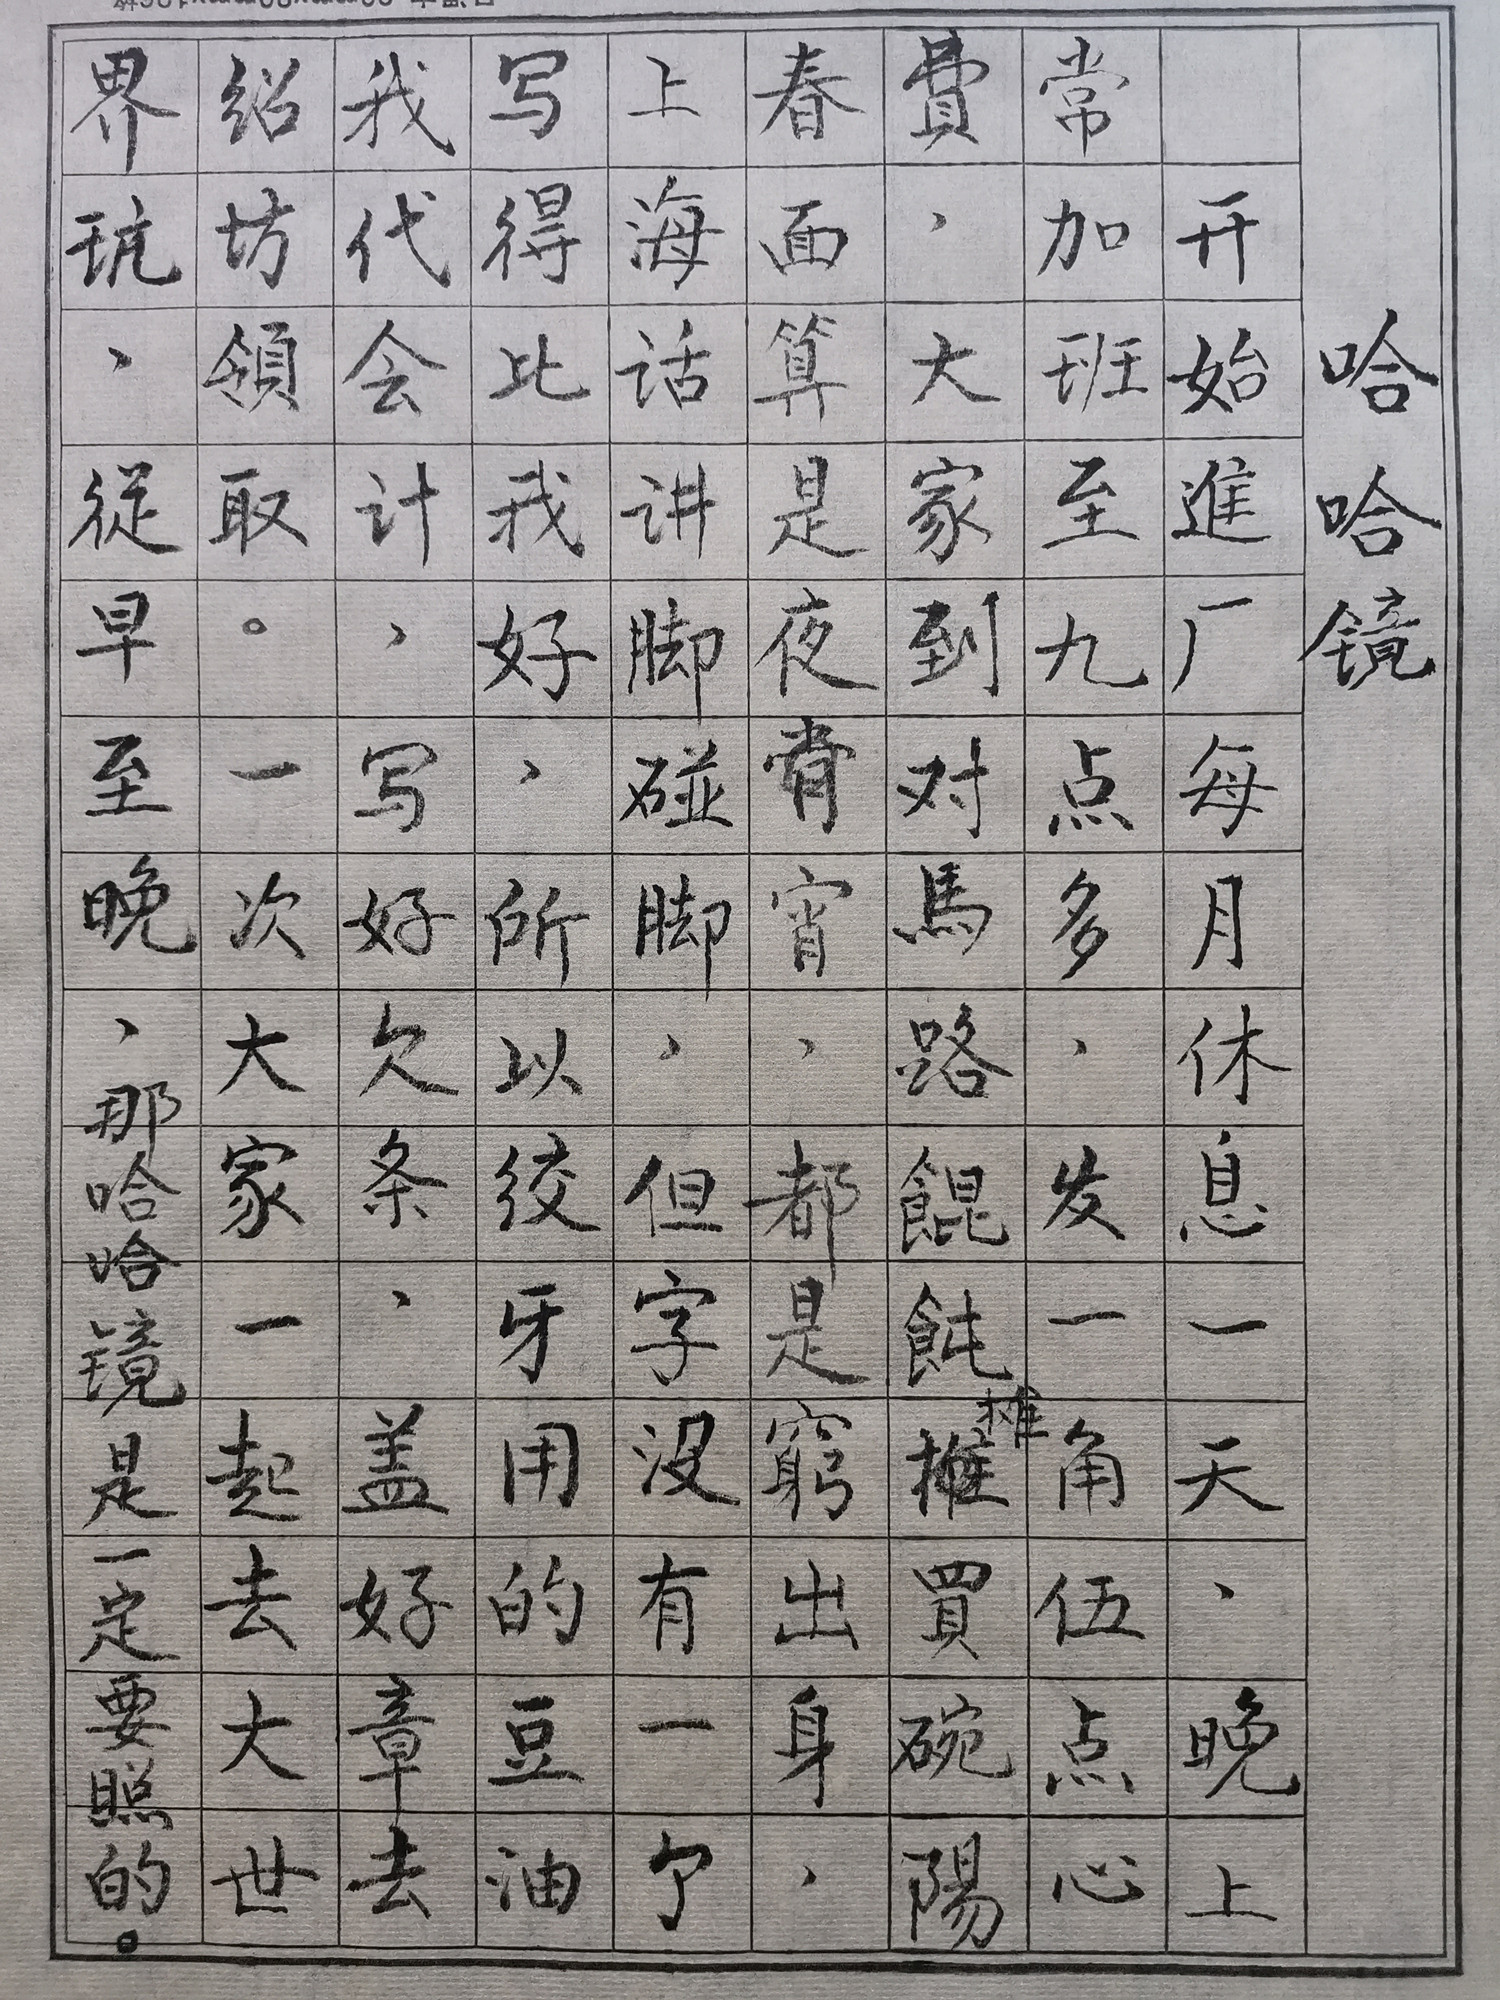 哈哈镜
开始進厂每月休息一天，晚上
常加班至九点多，发一角伍点心
費，大家到对馬路餛飩摊買碗陽
春面算是夜宵，都是窮出身，
上海话讲脚碰脚，但字没有一个
写得比我好，所以绞牙用的豆油
我代会计，写好欠条，盖好章去
绍坊領取。一次大家一起去大世
界玩，從早至晚，那哈哈镜是一定要照的。